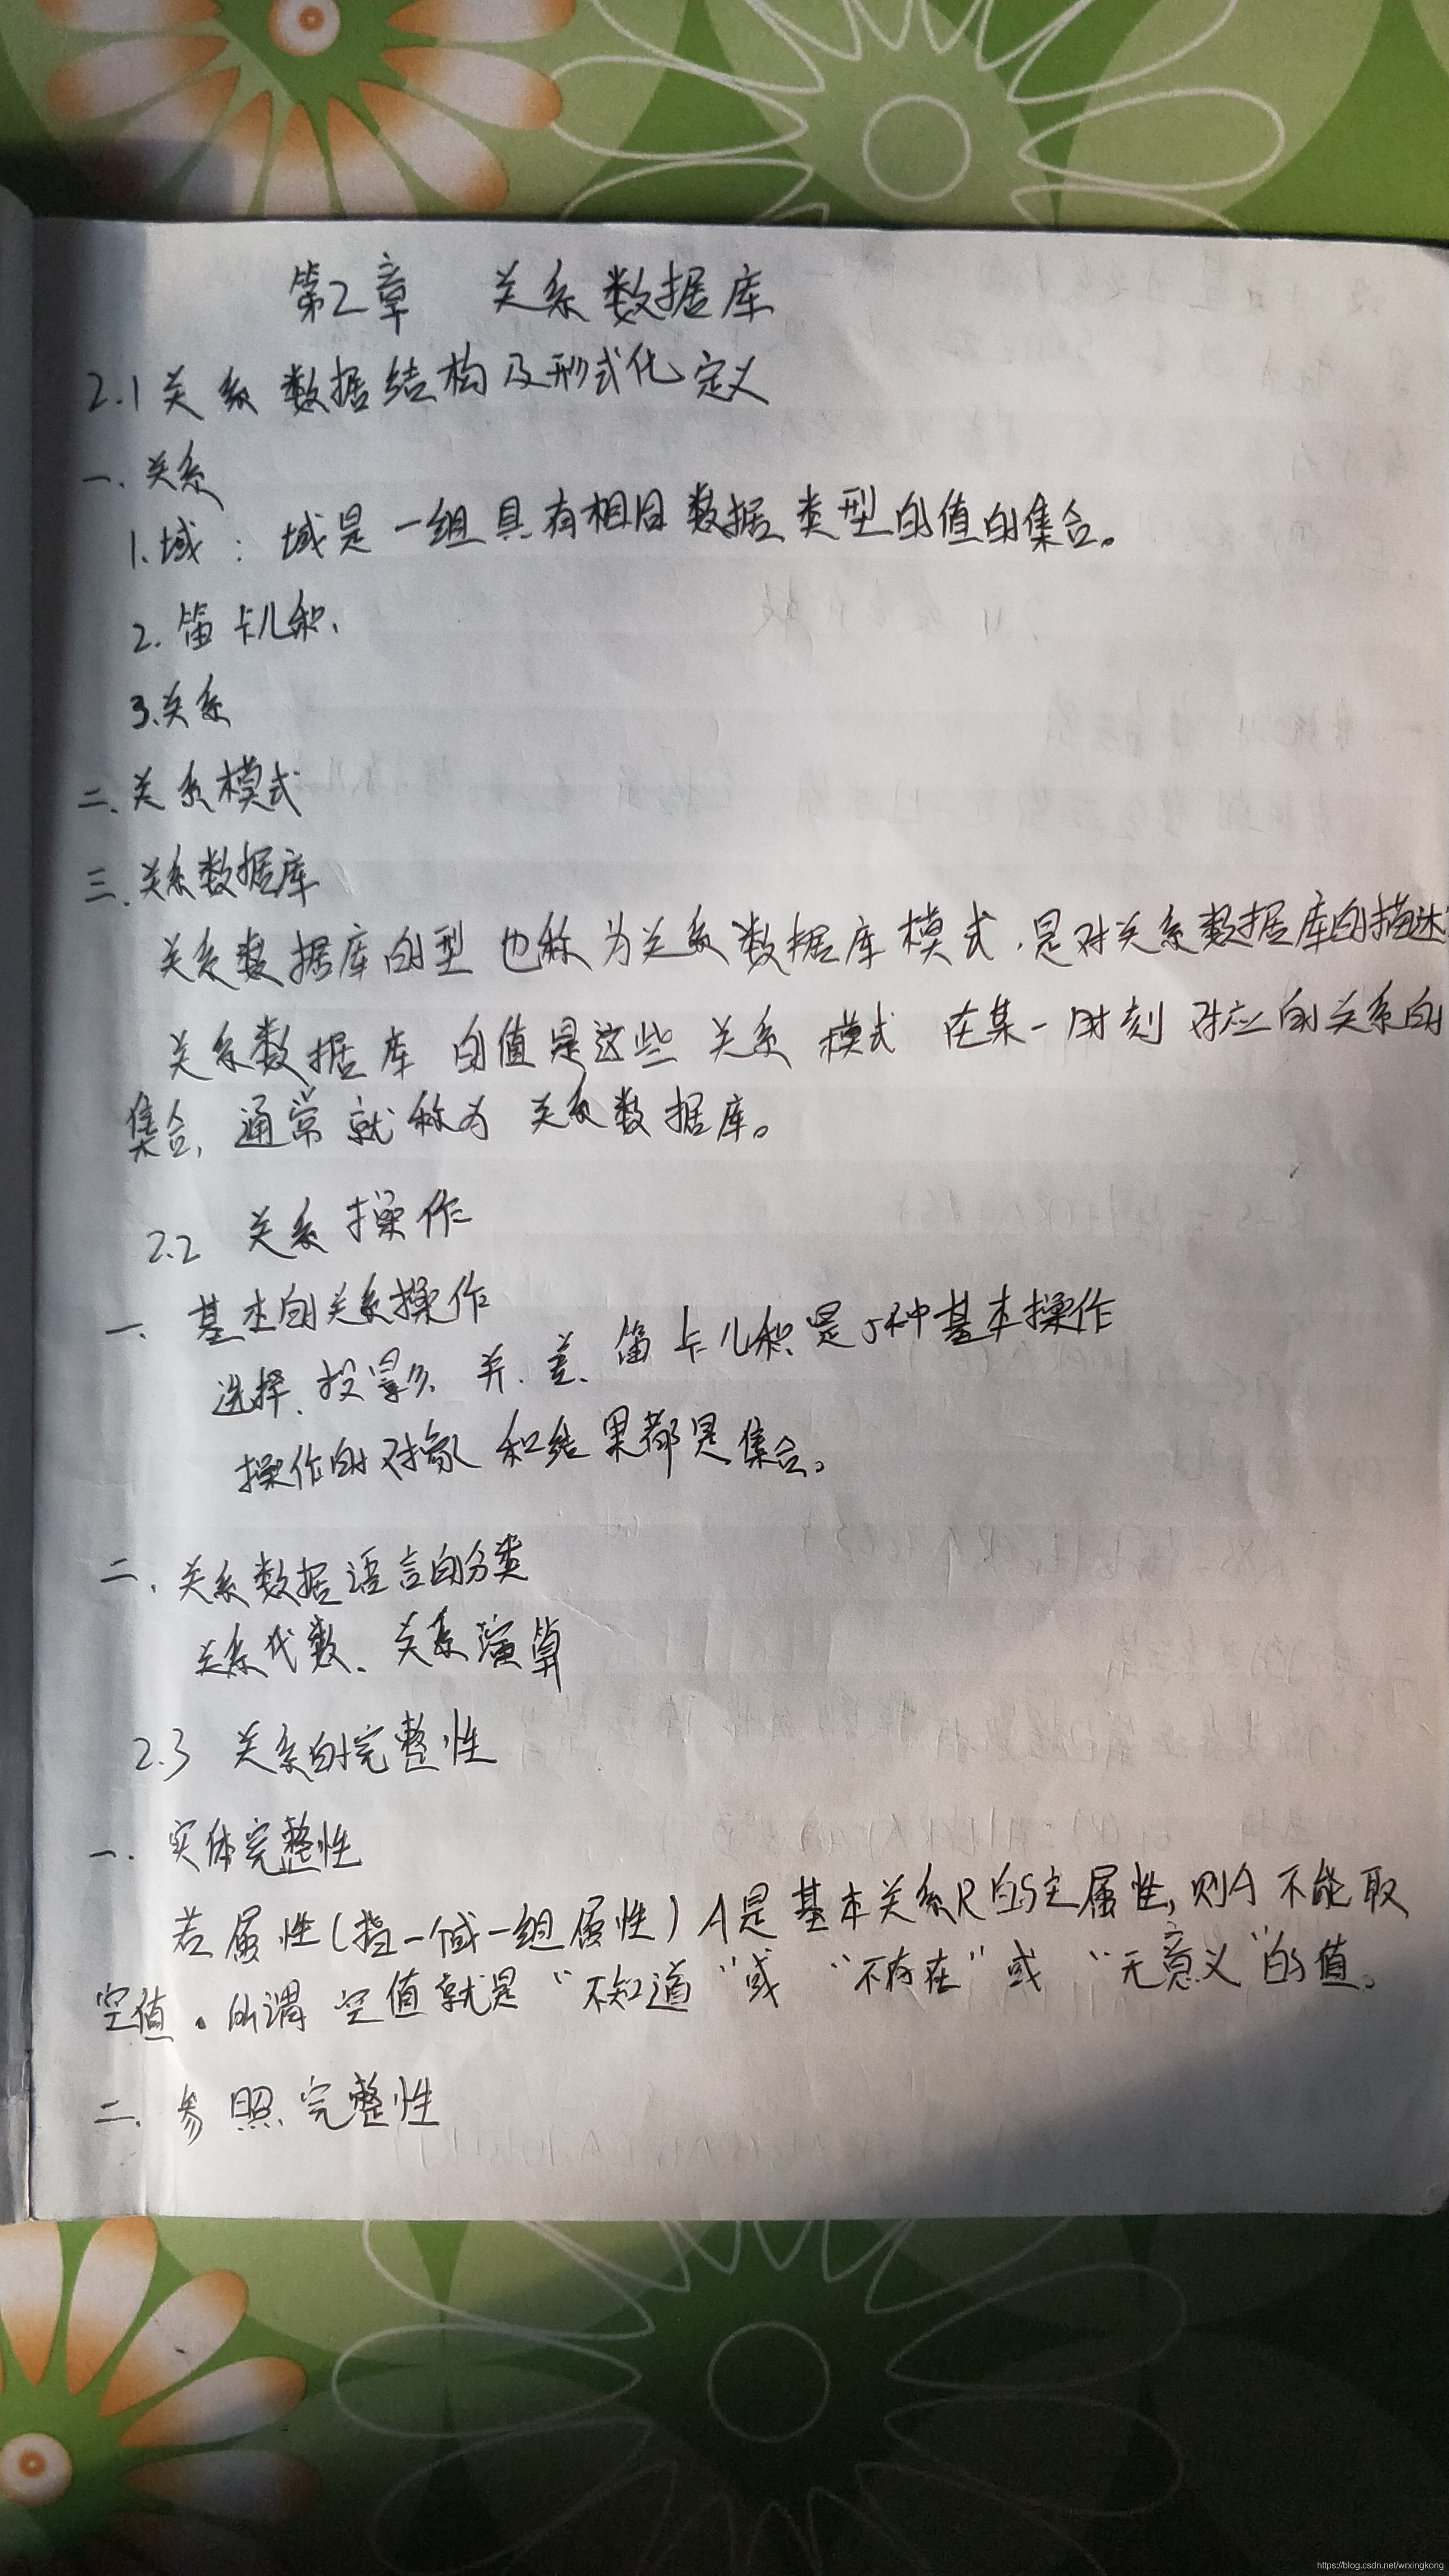 第2章 关系数据库
2.1 关系数据结构及形式化定义
一. 关系
1. 域: 域是一组具有相同数据类型的值的集合。
2. 笛卡儿积
3. 关系
二. 关系模式
三. 关系数据库
关系数据库的型也称为关系数据库模式,是对关系数据库的描述
关系数据库的值是这些关系模式在某一时刻对应的关系的
集合,通常就称为关系数据库。
2.2 关系操作
一. 基本的关系操作
选择、投影、并、差、笛卡儿积是5种基本操作
操作的对象和结果都是集合。
二. 关系数据语言的分类
关系代数、关系演算
2.3 关系的完整性
一. 实体完整性
若属性(指一个或一组属性)A是基本关系R的主属性,则A不能取
空值。所谓空值就是“不知道”或“不存在”或“无意义”的值。
二. 参照完整性
https://blog.csdn.net/wrxingkong